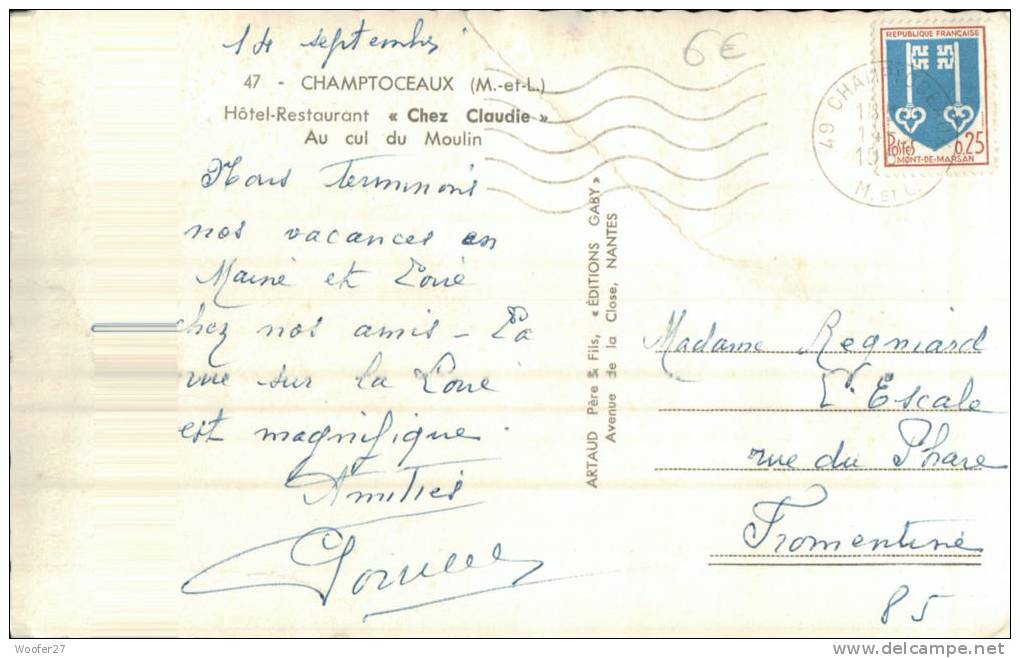 14 septembre
47 - CHAMPTOCEAUX (M.-et-L.)
Hôtel-Restaurant « Chez Claudie »
Au cul du Moulin
Nous Terminons
nos vacances en
Maine et Loire
chez nos amis - La
vue sur la Loire
est magnifique.
Amitiés
ARTAUD Père & Fils, « ÉDITIONS GABY »
Avenue de la Close, NANTES
6€
REPUBLIQUE FRANÇAISE
POSTES 0,25
MONT-DE-MARSAN
49 CHAMPT
M. ET L.
Madame Regniard
L'Escale
rue du Phare
Fromentine
85
Woofer27
delcampe.net